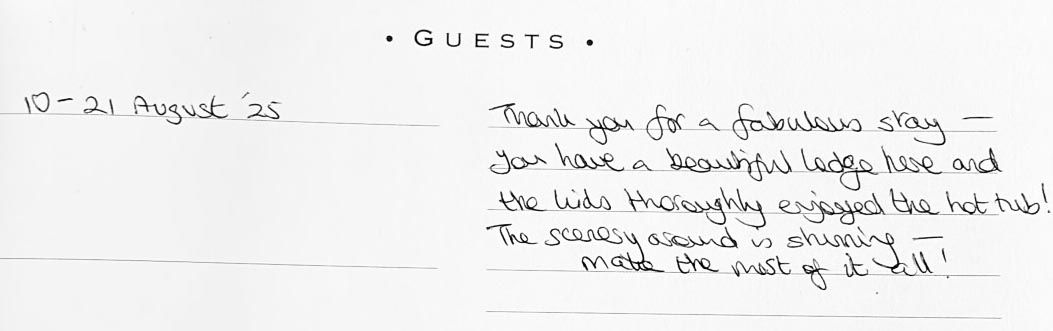 • GUESTS •
10-21 August '25
Thank you for a fabulous stay –
you have a beautiful lodge here and
the kids thoroughly enjoyed the hot tub!
The scenery around is stunning –
make the most of it all!